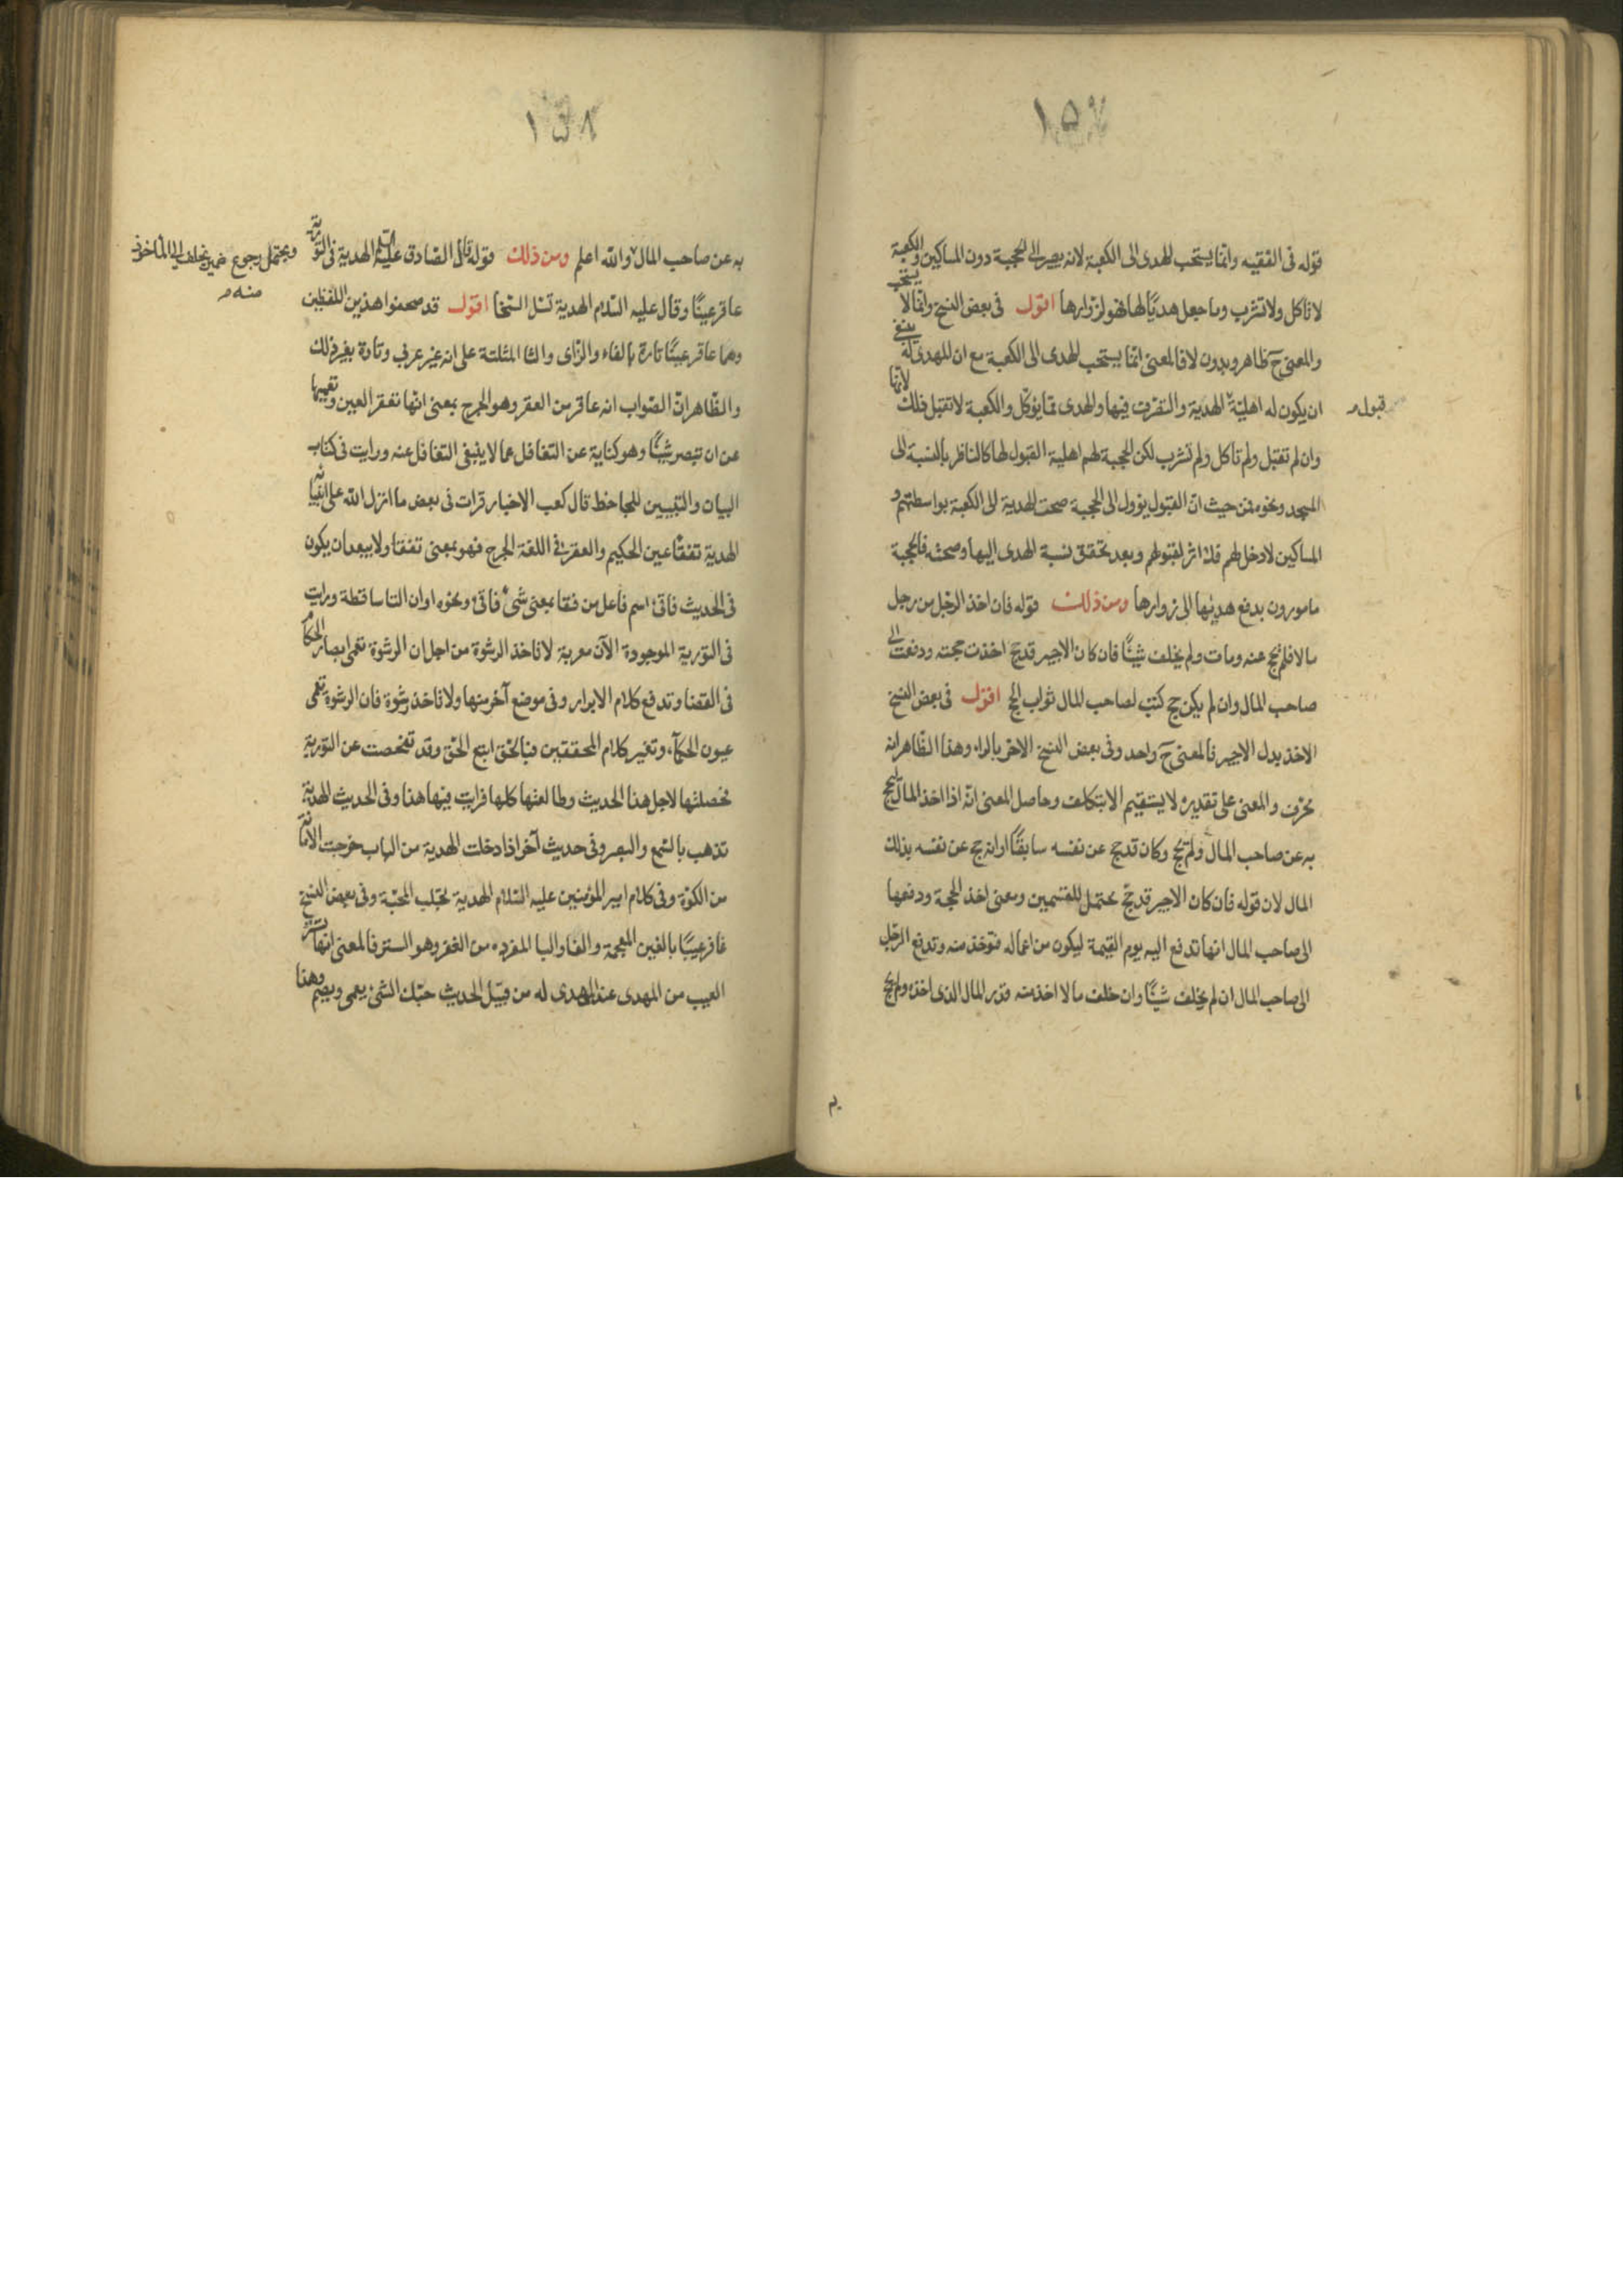 ١٥٧
قوله فى الفقيه وانما يستحب الهدى الى الكعبة لانه يصير الى الحجبة دون المساكين والكعبة
لا تاكل ولا تشرب وما جعل هديًا لها فهو لزوارها اقول فى بعض النسخ وانما لا يستحب
والمعنى ح ظاهر وبدون لا فالمعنى انما يستحب الهدى الى الكعبة مع ان المهدى له ينبغى
ان يكون له اهليّة الهدية والتصرف فيها والهدى مما يؤكل والكعبة لا تقبل ذلك لانها
قبول
وان لم تقبل ولم تاكل ولم تشرب لكن الحجبة لهم اهلية القبول لها كالناظر بالنسبة الى
المسجد ونحوه فمن حيث انّ القبول يؤول الى الحجبة صحت الهدية الى الكعبة بواسطتهم و
المساكين لا دخل لهم فلا اثر لقبولهم وبعد تحقق نسبة الهدى اليها وصحته فالحجبة
مامورون بدفع هديتها الى زوارها ومن ذلك قوله فان اخذ الرجل من رجل
مالا فلم يحج عنه ومات ولم يخلف شيئًا فان كان الاجير قد حج اخذت حجته ودفعت الى
صاحب المال وان لم يكن حج كتب لصاحب المال ثواب الحج اقول فى بعض النسخ
الاخذ بدل الاجير فالمعنى ح واحد وفى بعض النسخ الاخر بالراء وهذا الظاهر انه
محرف والمعنى على تقديره لا يستقيم الا بتكلف وحاصل المعنى انه اذا اخذ المال ليحج
به عن صاحب المال ولم يحج وكان قد حج عن نفسه سابقًا او انه حج عن نفسه بذلك
المال لان قوله فان كان الاجير قد حج يحتمل للقسمين ومعنى اخذ الحجة ودفعها
الى صاحب المال انها تدفع اليه يوم القيمة ليكون من اعماله فتوخذ منه وتدفع الرجل
الى صاحب المال ان لم يخلف شيئًا وان خلف مالا اخذ منه قدر المال الذى اخذه ولم يحج
١٥٨
به عن صاحب المال والله اعلم ومن ذلك قوله قال الصادق عليه السلم الهدية فى التورية
ويحتمل رجوع ضمير يخلف الى الماخوذ
منه م
عاقر عينًا وقال عليه السلام الهدية تسل السخما اقول قد صحفوا هذين اللفظين
وهما عاقر عينًا تارة بالفاء والزاى والثا المثلثة على انه غير عربى وتارة بغير ذلك
والظاهر انّ الصواب انه عاقر من العقر وهو الجرح بمعنى انها تعقر العين وتعميها
عن ان تبصر شيئًا وهو كناية عن التغافل عما لا ينبغى التغافل عنه ورايت فى كتاب
البيان والتبيين للجاحظ قال كعب الاحبار قرات فى بعض ما انزل الله على انبيائه
الهدية تفقأ عين الحكيم والعقر فى اللغة الجرح فهو بمعنى تفقا ولا يبعد ان يكون
فى الحديث فاقئ اسم فاعل من فقا بمعنى شئ فاقئ ونحوه او ان التا ساقطة ورايت
فى التورية الموجودة الآن معربة لا تاخذ الرشوة من اجل ان الرشوة تعمى ابصار الحكام
فى القضا وتدفع كلام الابرار وفى موضع آخر منها ولا تاخذ رشوة فان الرشوة تعمى
عيون الحكماء وتغير كلام المحققين فبالحق اتبع الحق وقد تفحصت عن التورية
فحصلتها لاجل هذا الحديث وطالعتها كلها فرايت فيها هذا وفى الحديث الهدية
تذهب بالسمع والبصر وفى حديث آخر اذا دخلت الهدية من الباب خرجت الامانة
من الكوّة وفى كلام امير المؤمنين عليه السلام الهدية تجلب المحبّة وفى بعض النسخ
غافر عيبًا بالغين المعجمة والفا واليا المفرده من الغفر وهو الستر فالمعنى انها تستر
العيب من المهدى عند المهدى له من قبيل الحديث حبّك الشئ يعمى ويصم وهذا